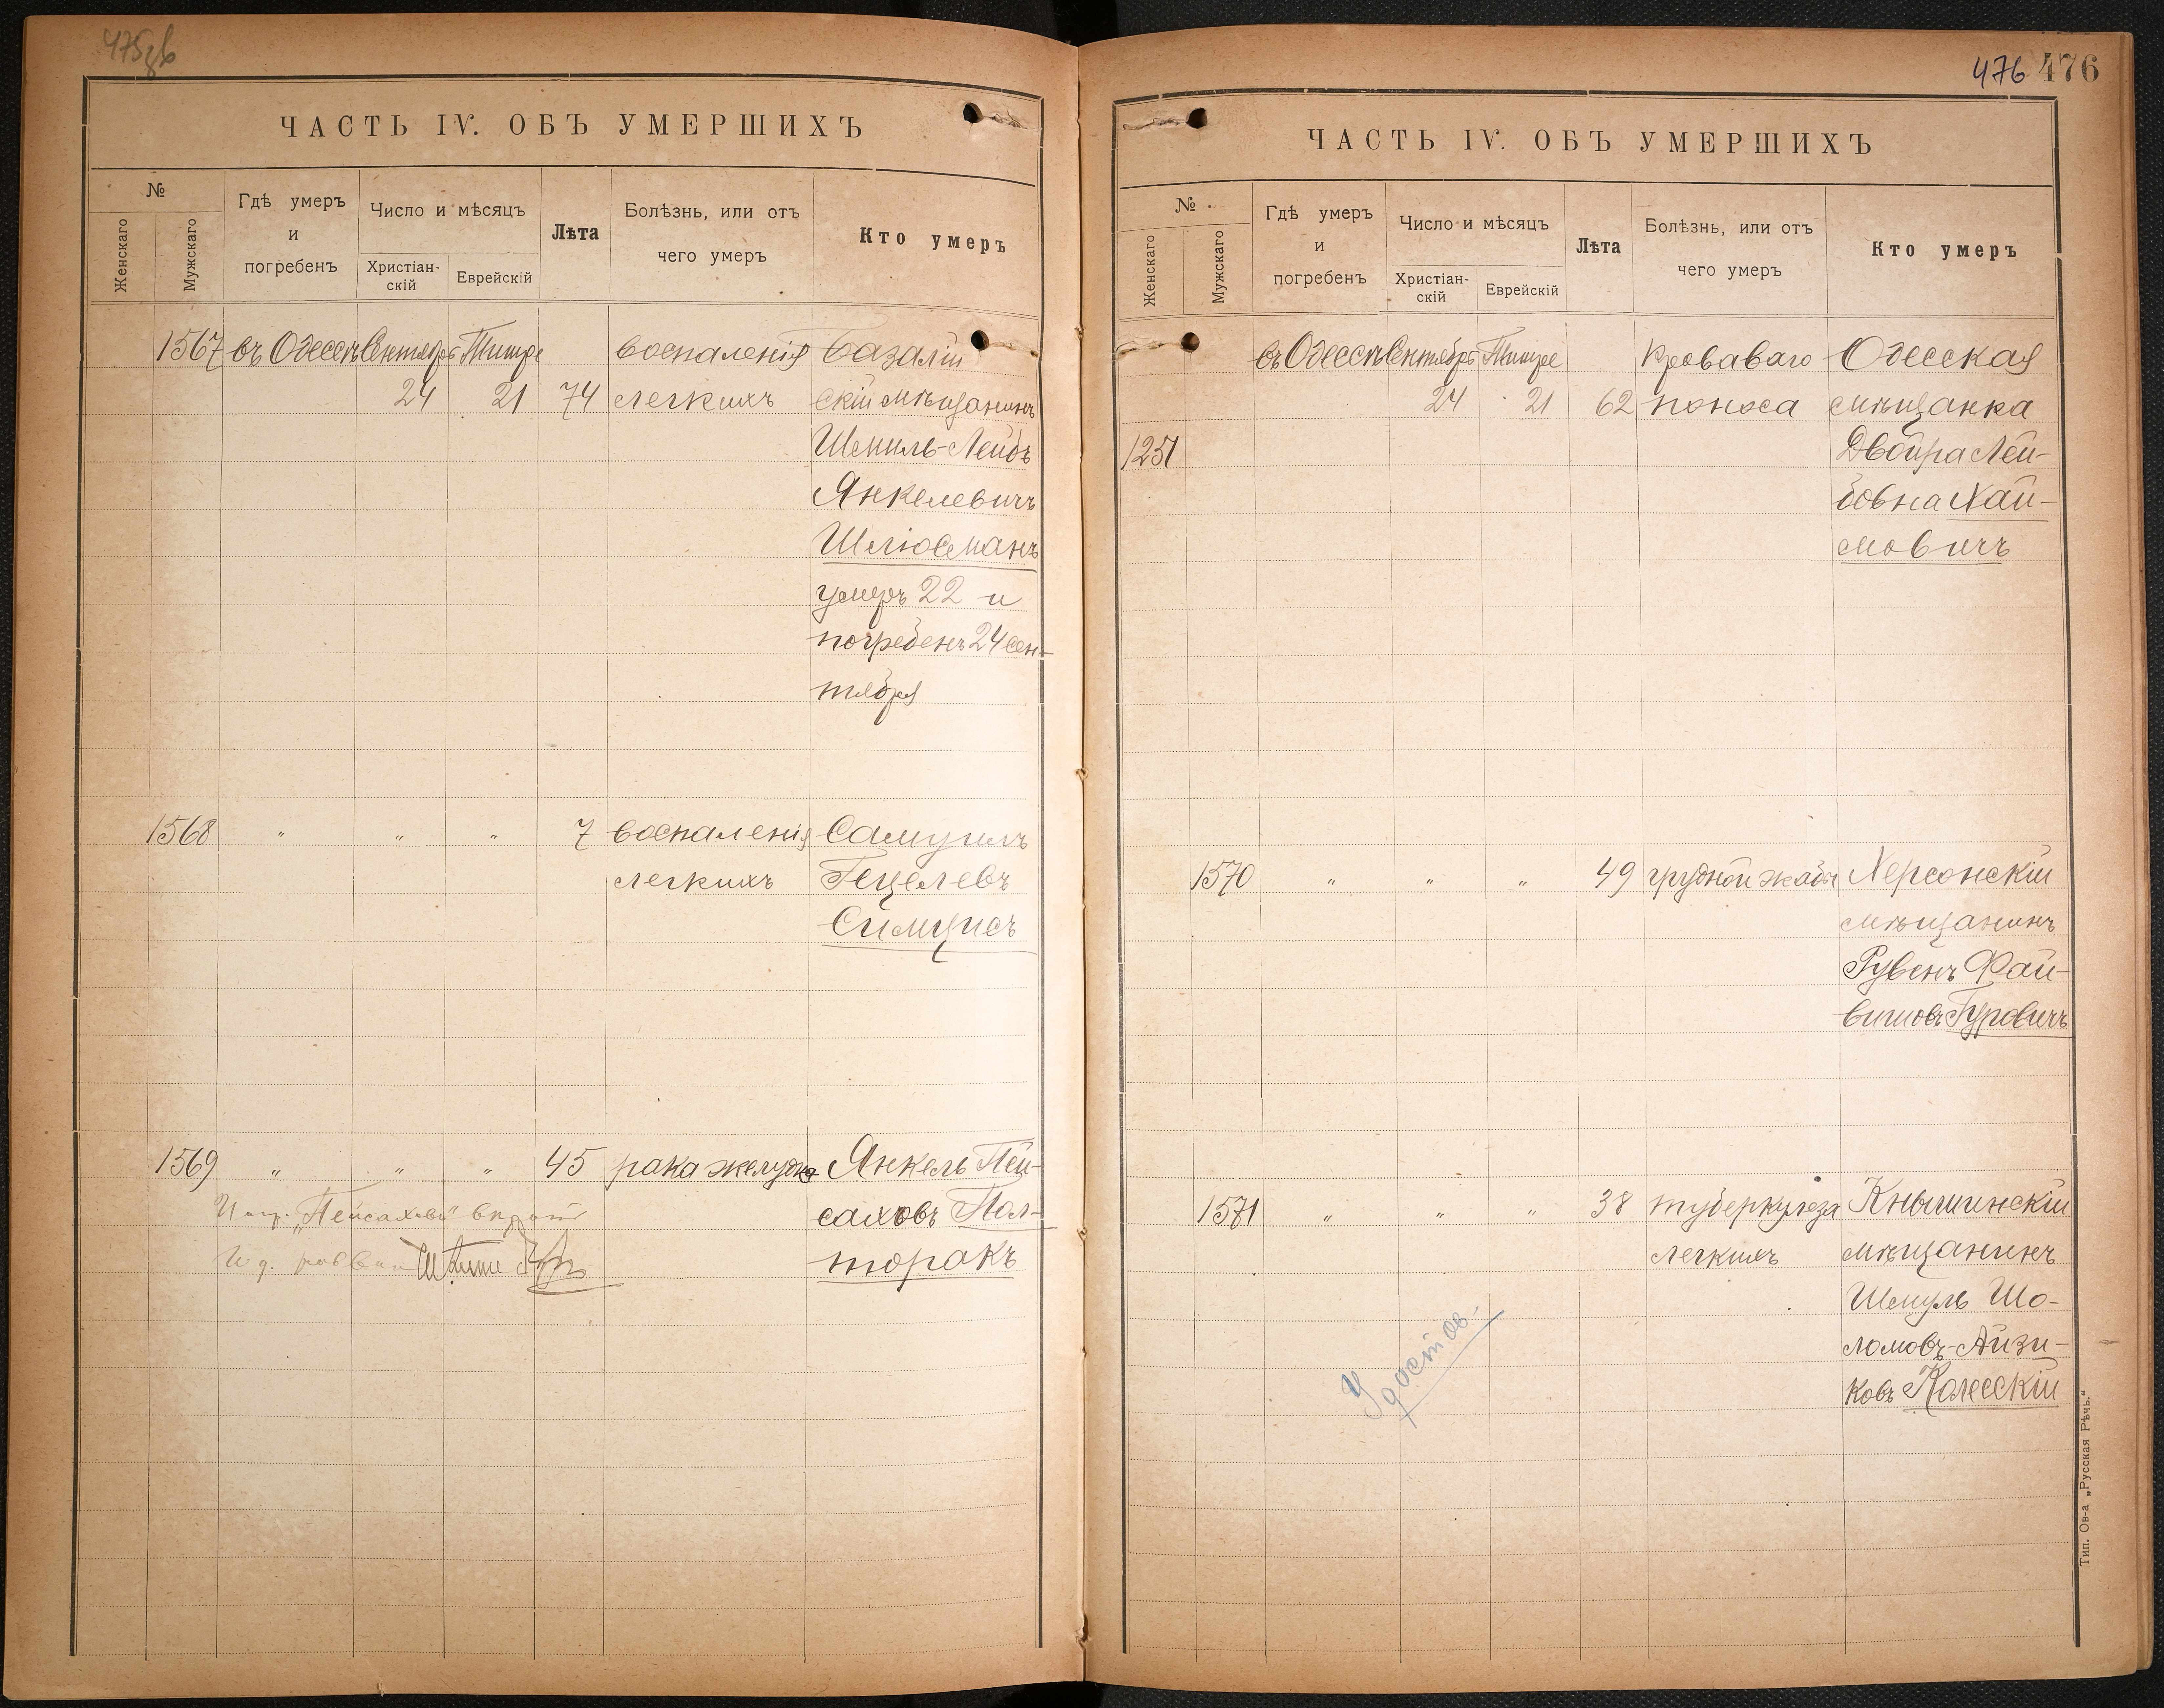 475
ЧАСТЬ IV. ОБЪ УМЕРШИХЪ
№
Женскаго
Мужскаго
Гдѣ умеръ
и
погребенъ
Число и мѣсяцъ
Христіан-
скій
Еврейскій
Лѣта
Болѣзнь, или отъ
чего умеръ
Кто умеръ
1567 въ Одессѣ Сентябрь Тишре воспаленія Базалій
24 21 74 легкихъ скій мѣщанинъ
Шмиль-Лейбъ
Янкелевичъ
Шлюсманъ
умеръ 22 и
погребенъ 24 сен-
тября
1568 " " " 7 воспаленія Самуилъ
легкихъ Гецелевъ
Симцисъ
1569 " " " 45 рака желудка Янкель Пей-
саховъ Пол-
"Пейсаховъ"
торакъ
476 476
ЧАСТЬ IV. ОБЪ УМЕРШИХЪ
№
Женскаго
Мужскаго
Гдѣ умеръ
и
погребенъ
Число и мѣсяцъ
Христіан-
скій
Еврейскій
Лѣта
Болѣзнь, или отъ
чего умеръ
Кто умеръ
въ Одессѣ Сентябрь Тишре Кроваваго Одесская
24 21 62 поноса мѣщанка
1251 Двойра Лей-
бовна Хай-
мовичъ
1570 " " " 49 грудной жабы Херсонскій
мѣщанинъ
Рувенъ Фай-
вишовъ Гуровичъ
1571 " " " 38 туберкулеза Кнышинскій
легкихъ мѣщанинъ
Шмуль Шо-
ломовъ-Айзи-
ковъ Колесскій
Удостов.
Тип. Ов-а „Русская Рѣчь.“